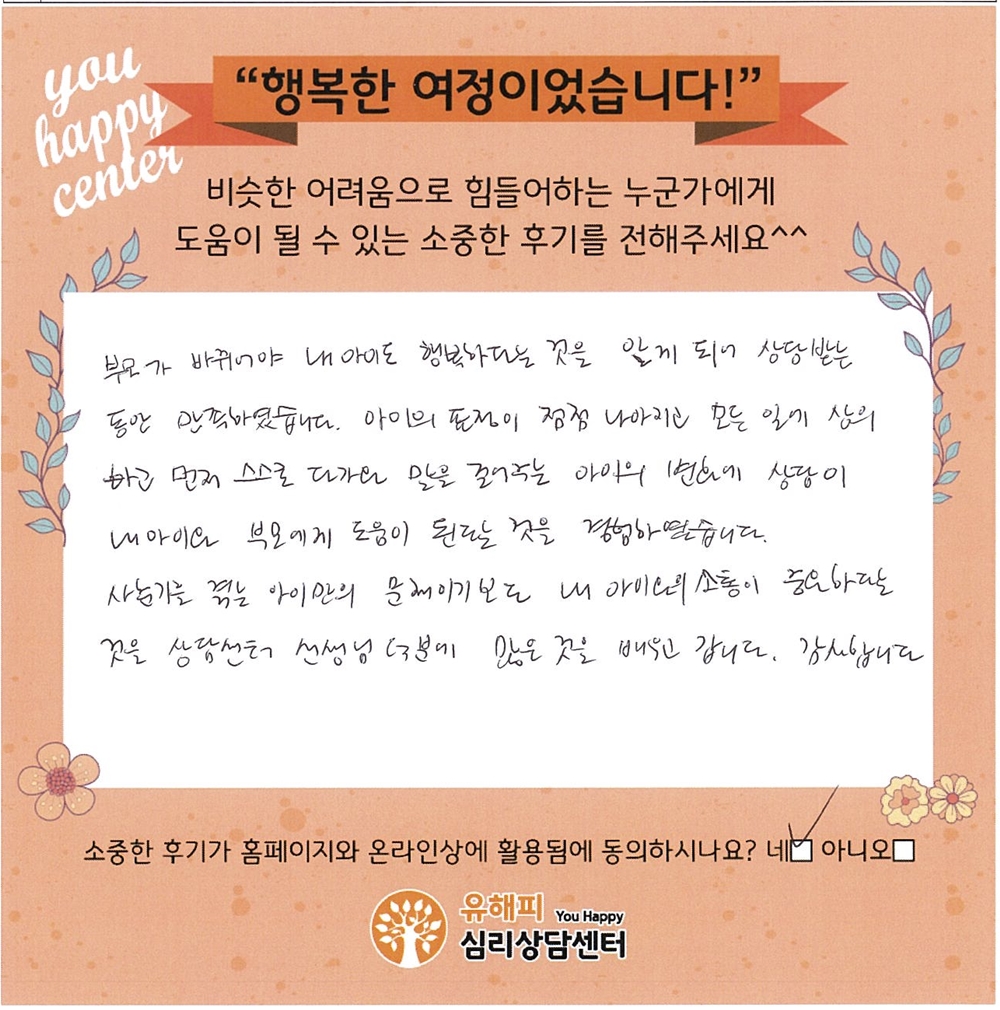 you
happy
center
“행복한 여정이었습니다!”
비슷한 어려움으로 힘들어하는 누군가에게
도움이 될 수 있는 소중한 후기를 전해주세요^^
부모가 바뀌어야 내 아이도 행복하다는 것을 알게 되어 상담받는
동안 만족하였습니다. 아이의 표정이 점점 나아지고 모든 일에 상의
하고 먼저 스스로 다가와 말을 걸어주는 아이의 변화에 상담이
내 아이와 부모에게 도움이 된다는 것을 경험하였습니다.
사춘기를 겪는 아이만의 문제이기보다 내 아이와의 소통이 중요하다는
것을 상담센터 선생님 덕분에 많은 것을 배우고 갑니다. 감사합니다
소중한 후기가 홈페이지와 온라인상에 활용됨에 동의하시나요? 네 아니오
유해피 You Happy
심리상담센터